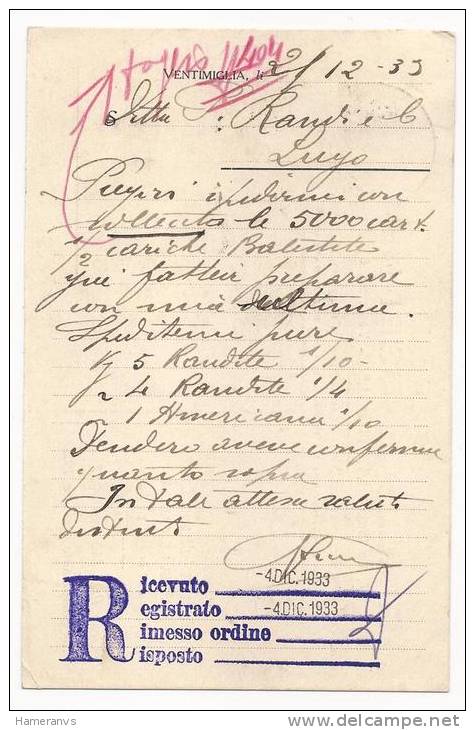 VENTIMIGLIA, li 2/12-33
Ditta Randi e C
Lugo
Pregovi spedirmi con
sollecito le 5000 cart.
1/2 cariche Balistite
già fattevi preparare
con mia ultima.
Speditemi pure
Kg 5 Randite 1/10-
" 4 Randite 1/4
1 Americana 1/10
Tendero avere conferma
quanto sopra
In tale attesa saluti
distinti
Ricevuto -4.DIC.1933
Registrato -4.DIC.1933
Rimesso ordine
Risposto
Hameranvs
delcampe.net